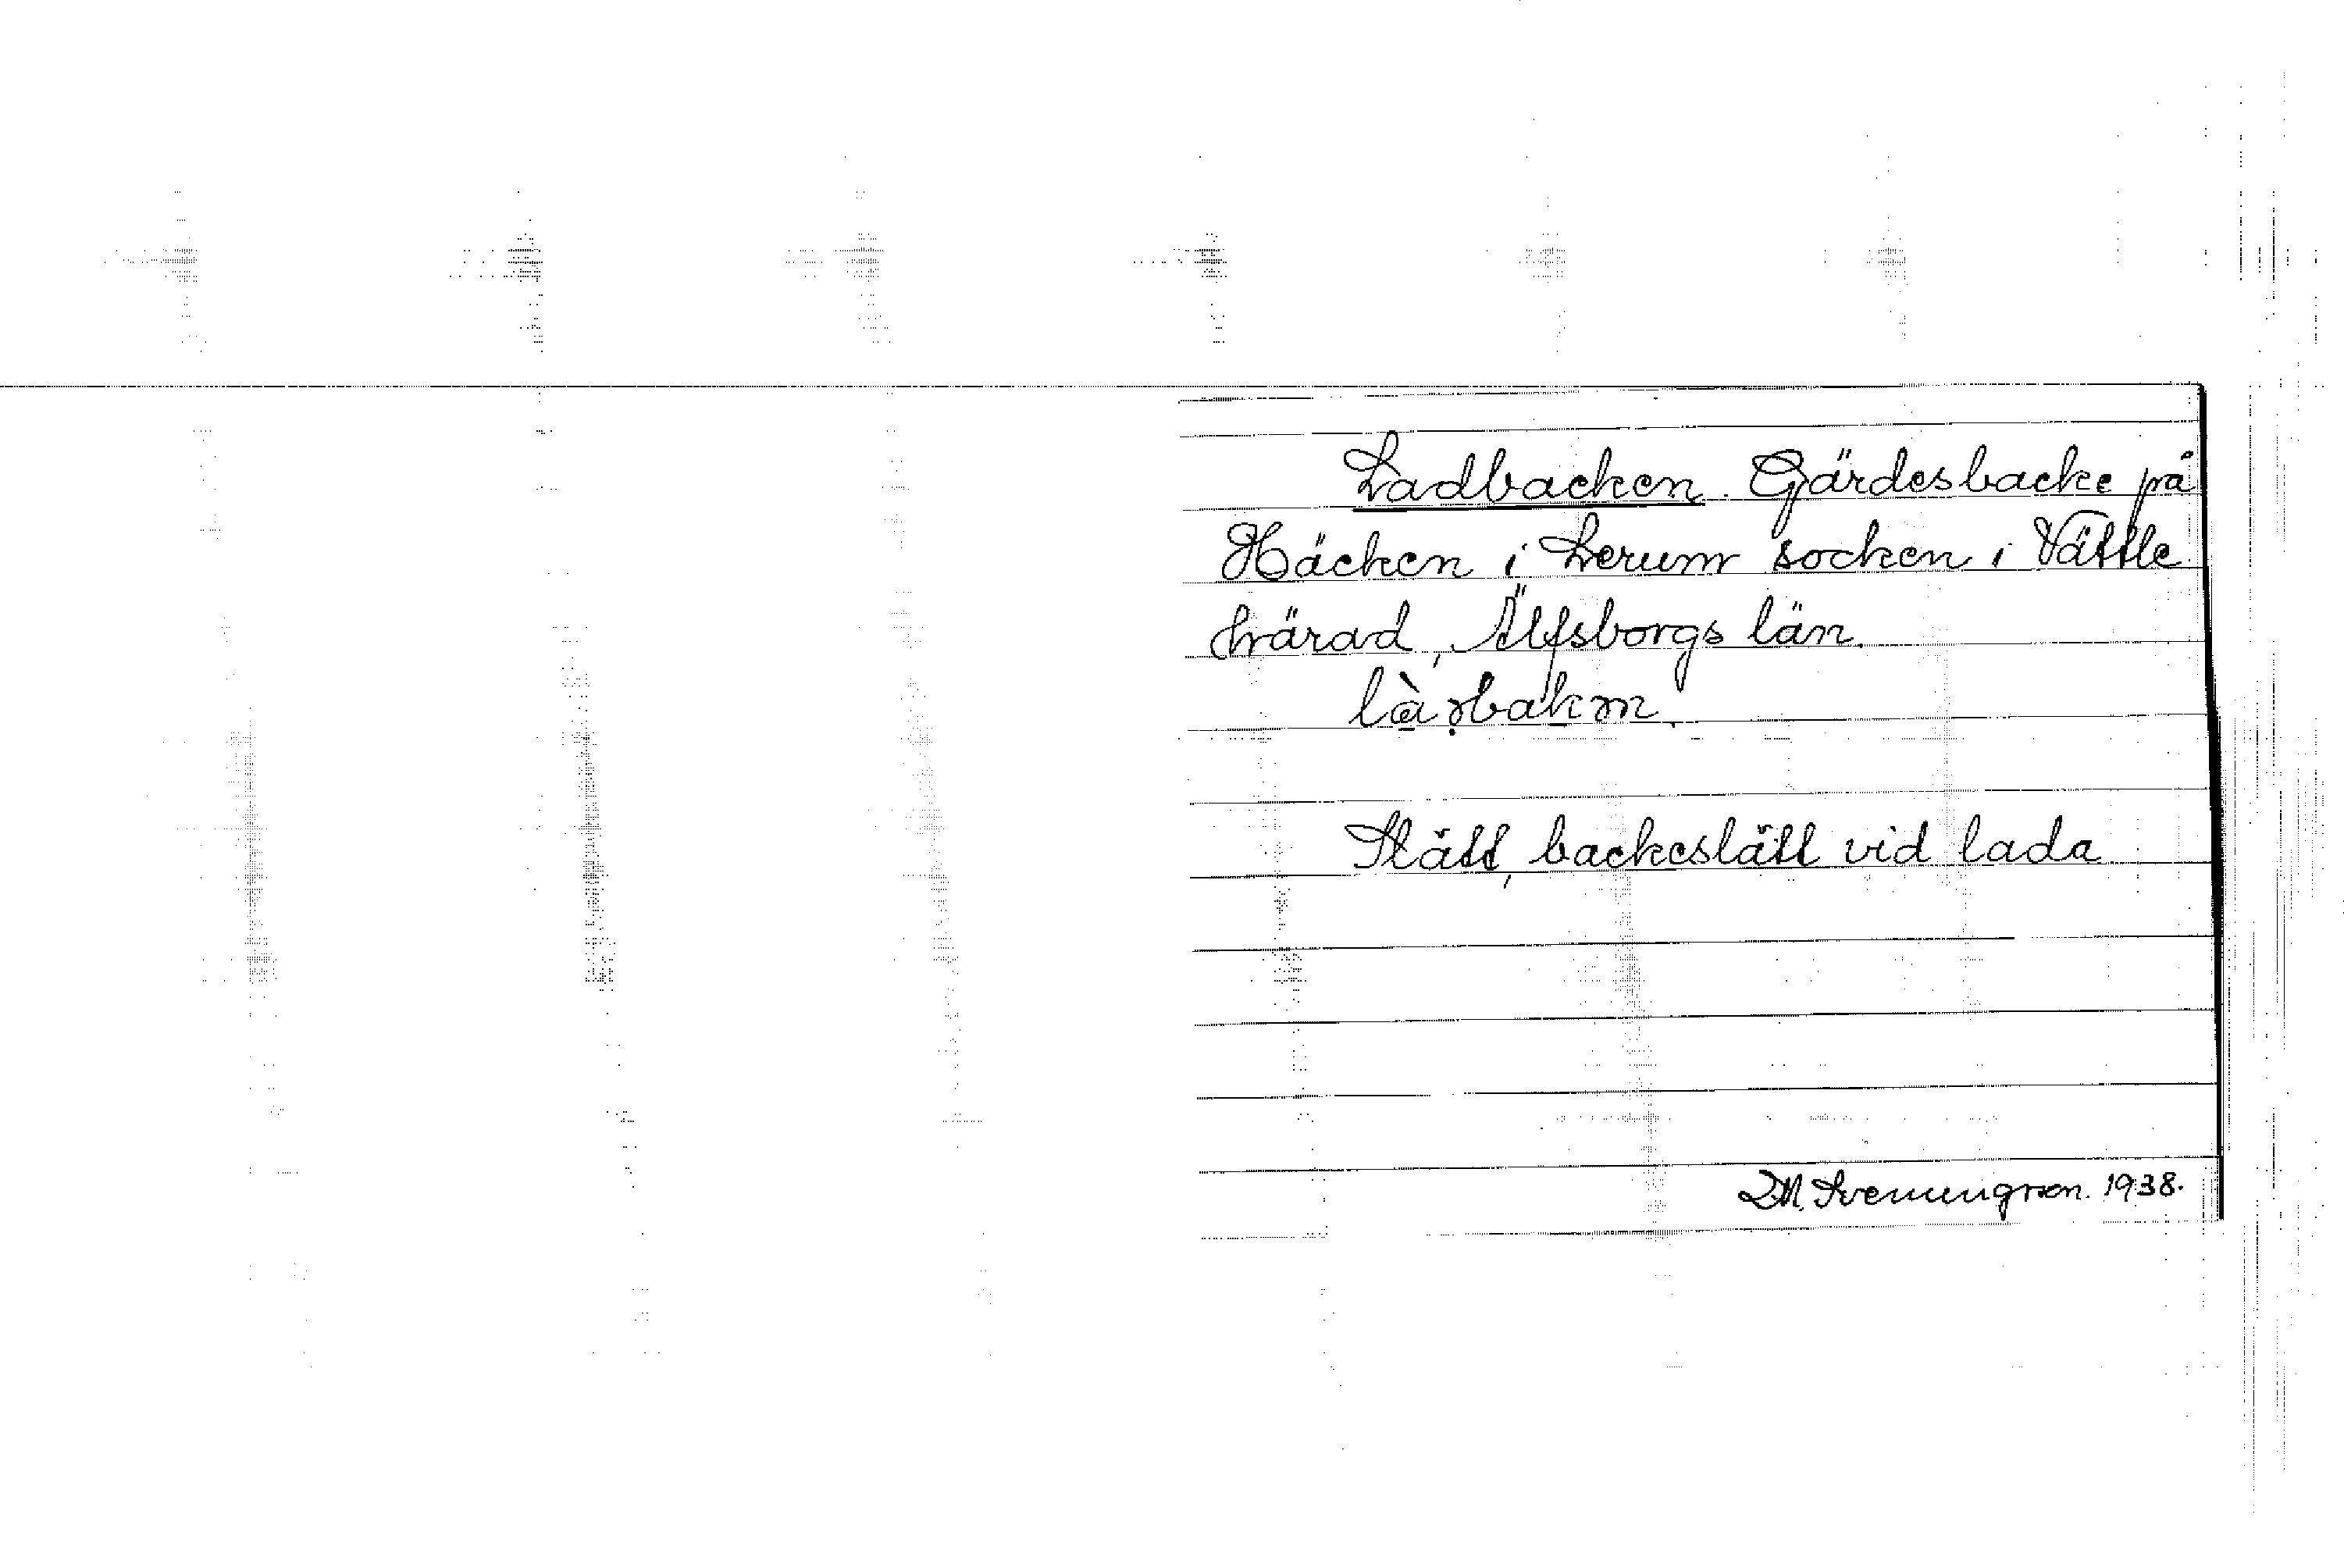 Ladbacken. Gärdesbacke på
Häcken i Lerum socken i Vättle
härad, Älfsborgs län.
Slätt, backeslätt vid lada
1938.